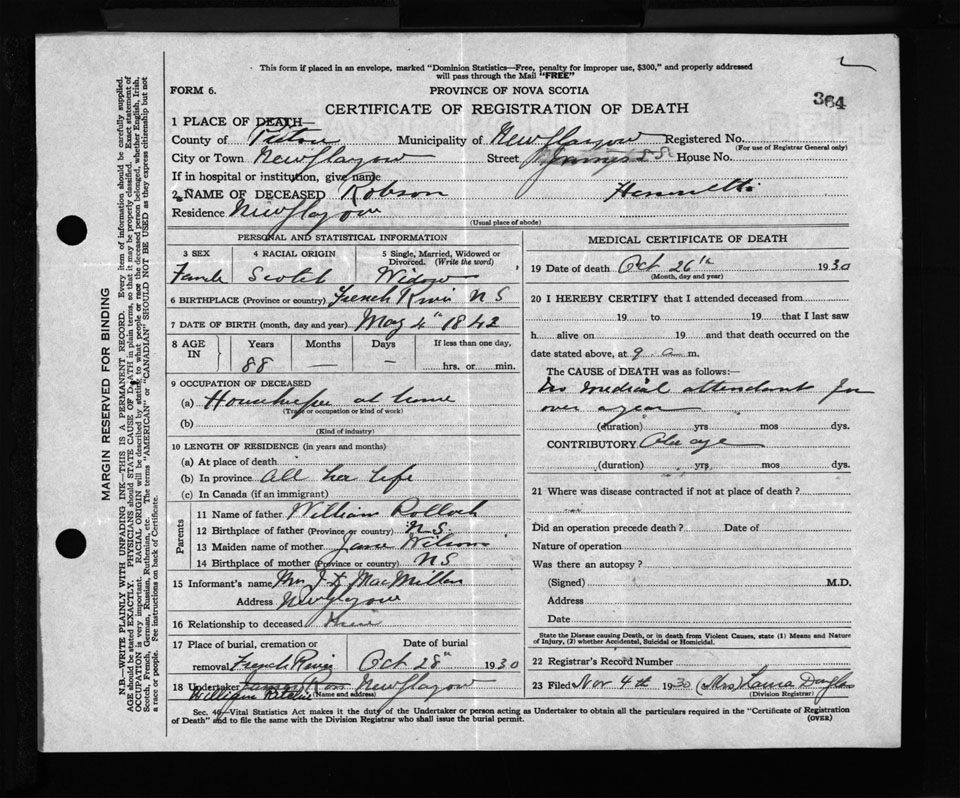 This form if placed in an envelope, marked "Dominion Statistics—Free, penalty for improper use, $300," and properly addressed
will pass through the Mail "FREE"
FORM 6.
PROVINCE OF NOVA SCOTIA
364
CERTIFICATE OF REGISTRATION OF DEATH
1 PLACE OF DEATH—
County of Pictou Municipality of New Glasgow Registered No.
(For use of Registrar General only)
City or Town New Glasgow Street James St House No.
If in hospital or institution, give name
2 NAME OF DECEASED Robson Henrietta
Residence New Glasgow
(Usual place of abode)
PERSONAL AND STATISTICAL INFORMATION
3 SEX 4 RACIAL ORIGIN 5 Single, Married, Widowed or Divorced. (Write the word)
Female Scotch Widow
6 BIRTHPLACE (Province or country) French River N S
7 DATE OF BIRTH (month, day and year) May 4th 1842
8 AGE IN Years Months Days If less than one day,
88 — — hrs. or min.
9 OCCUPATION OF DECEASED
(a) Housekeeper at home
(Trade or occupation or kind of work)
(b)
(Kind of industry)
10 LENGTH OF RESIDENCE (in years and months)
(a) At place of death
(b) In province All her life
(c) In Canada (if an immigrant)
Parents
11 Name of father William Pollock
12 Birthplace of father (Province or country) N.S.
13 Maiden name of mother Jane Wilson
14 Birthplace of mother (Province or country) N S
15 Informant's name Mrs J D MacMillan
Address New Glasgow
16 Relationship to deceased Niece
17 Place of burial, cremation or Date of burial
removal French River Oct 28th 1930
18 Undertaker James Ross New Glasgow
William
(Name and address)
MEDICAL CERTIFICATE OF DEATH
19 Date of death Oct 26th 1930
(Month, day and year)
20 I HEREBY CERTIFY that I attended deceased from
19 to 19 that I last saw
h alive on 19 and that death occurred on the
date stated above, at 9 a m.
The CAUSE of DEATH was as follows:—
No medical attendant for
over a year
(duration) yrs mos dys.
CONTRIBUTORY Old age
(duration) yrs mos dys.
21 Where was disease contracted if not at place of death?
Did an operation precede death? Date of
Nature of operation
Was there an autopsy?
(Signed) M.D.
Address
Date
State the Disease causing Death, or in death from Violent Causes, state (1) Means and Nature
of Injury, (2) whether Accidental, Suicidal or Homicidal.
22 Registrar's Record Number
23 Filed Nov 4th 1930 (Mrs) Laura Douglas
(Division Registrar)
Sec. 40—Vital Statistics Act makes it the duty of the Undertaker or person acting as Undertaker to obtain all the particulars required in the "Certificate of Registration
of Death" and to file the same with the Division Registrar who shall issue the burial permit.
(OVER)
MARGIN RESERVED FOR BINDING
N.B.—WRITE PLAINLY WITH UNFADING INK—THIS IS A PERMANENT RECORD. Every item of information should be carefully supplied.
AGE should be stated EXACTLY. PHYSICIANS should STATE CAUSE OF DEATH in plain terms, so that it may be properly classified. Exact statement of
OCCUPATION is very important. RACIAL ORIGIN will be described by stating to what people or race the deceased person belonged, whether English, Irish,
Scotch, French, German, Russian, Ruthenian, etc. The terms "AMERICAN" or "CANADIAN" SHOULD NOT BE USED as they express citizenship but not
a race or people. See instructions on back of Certificate.